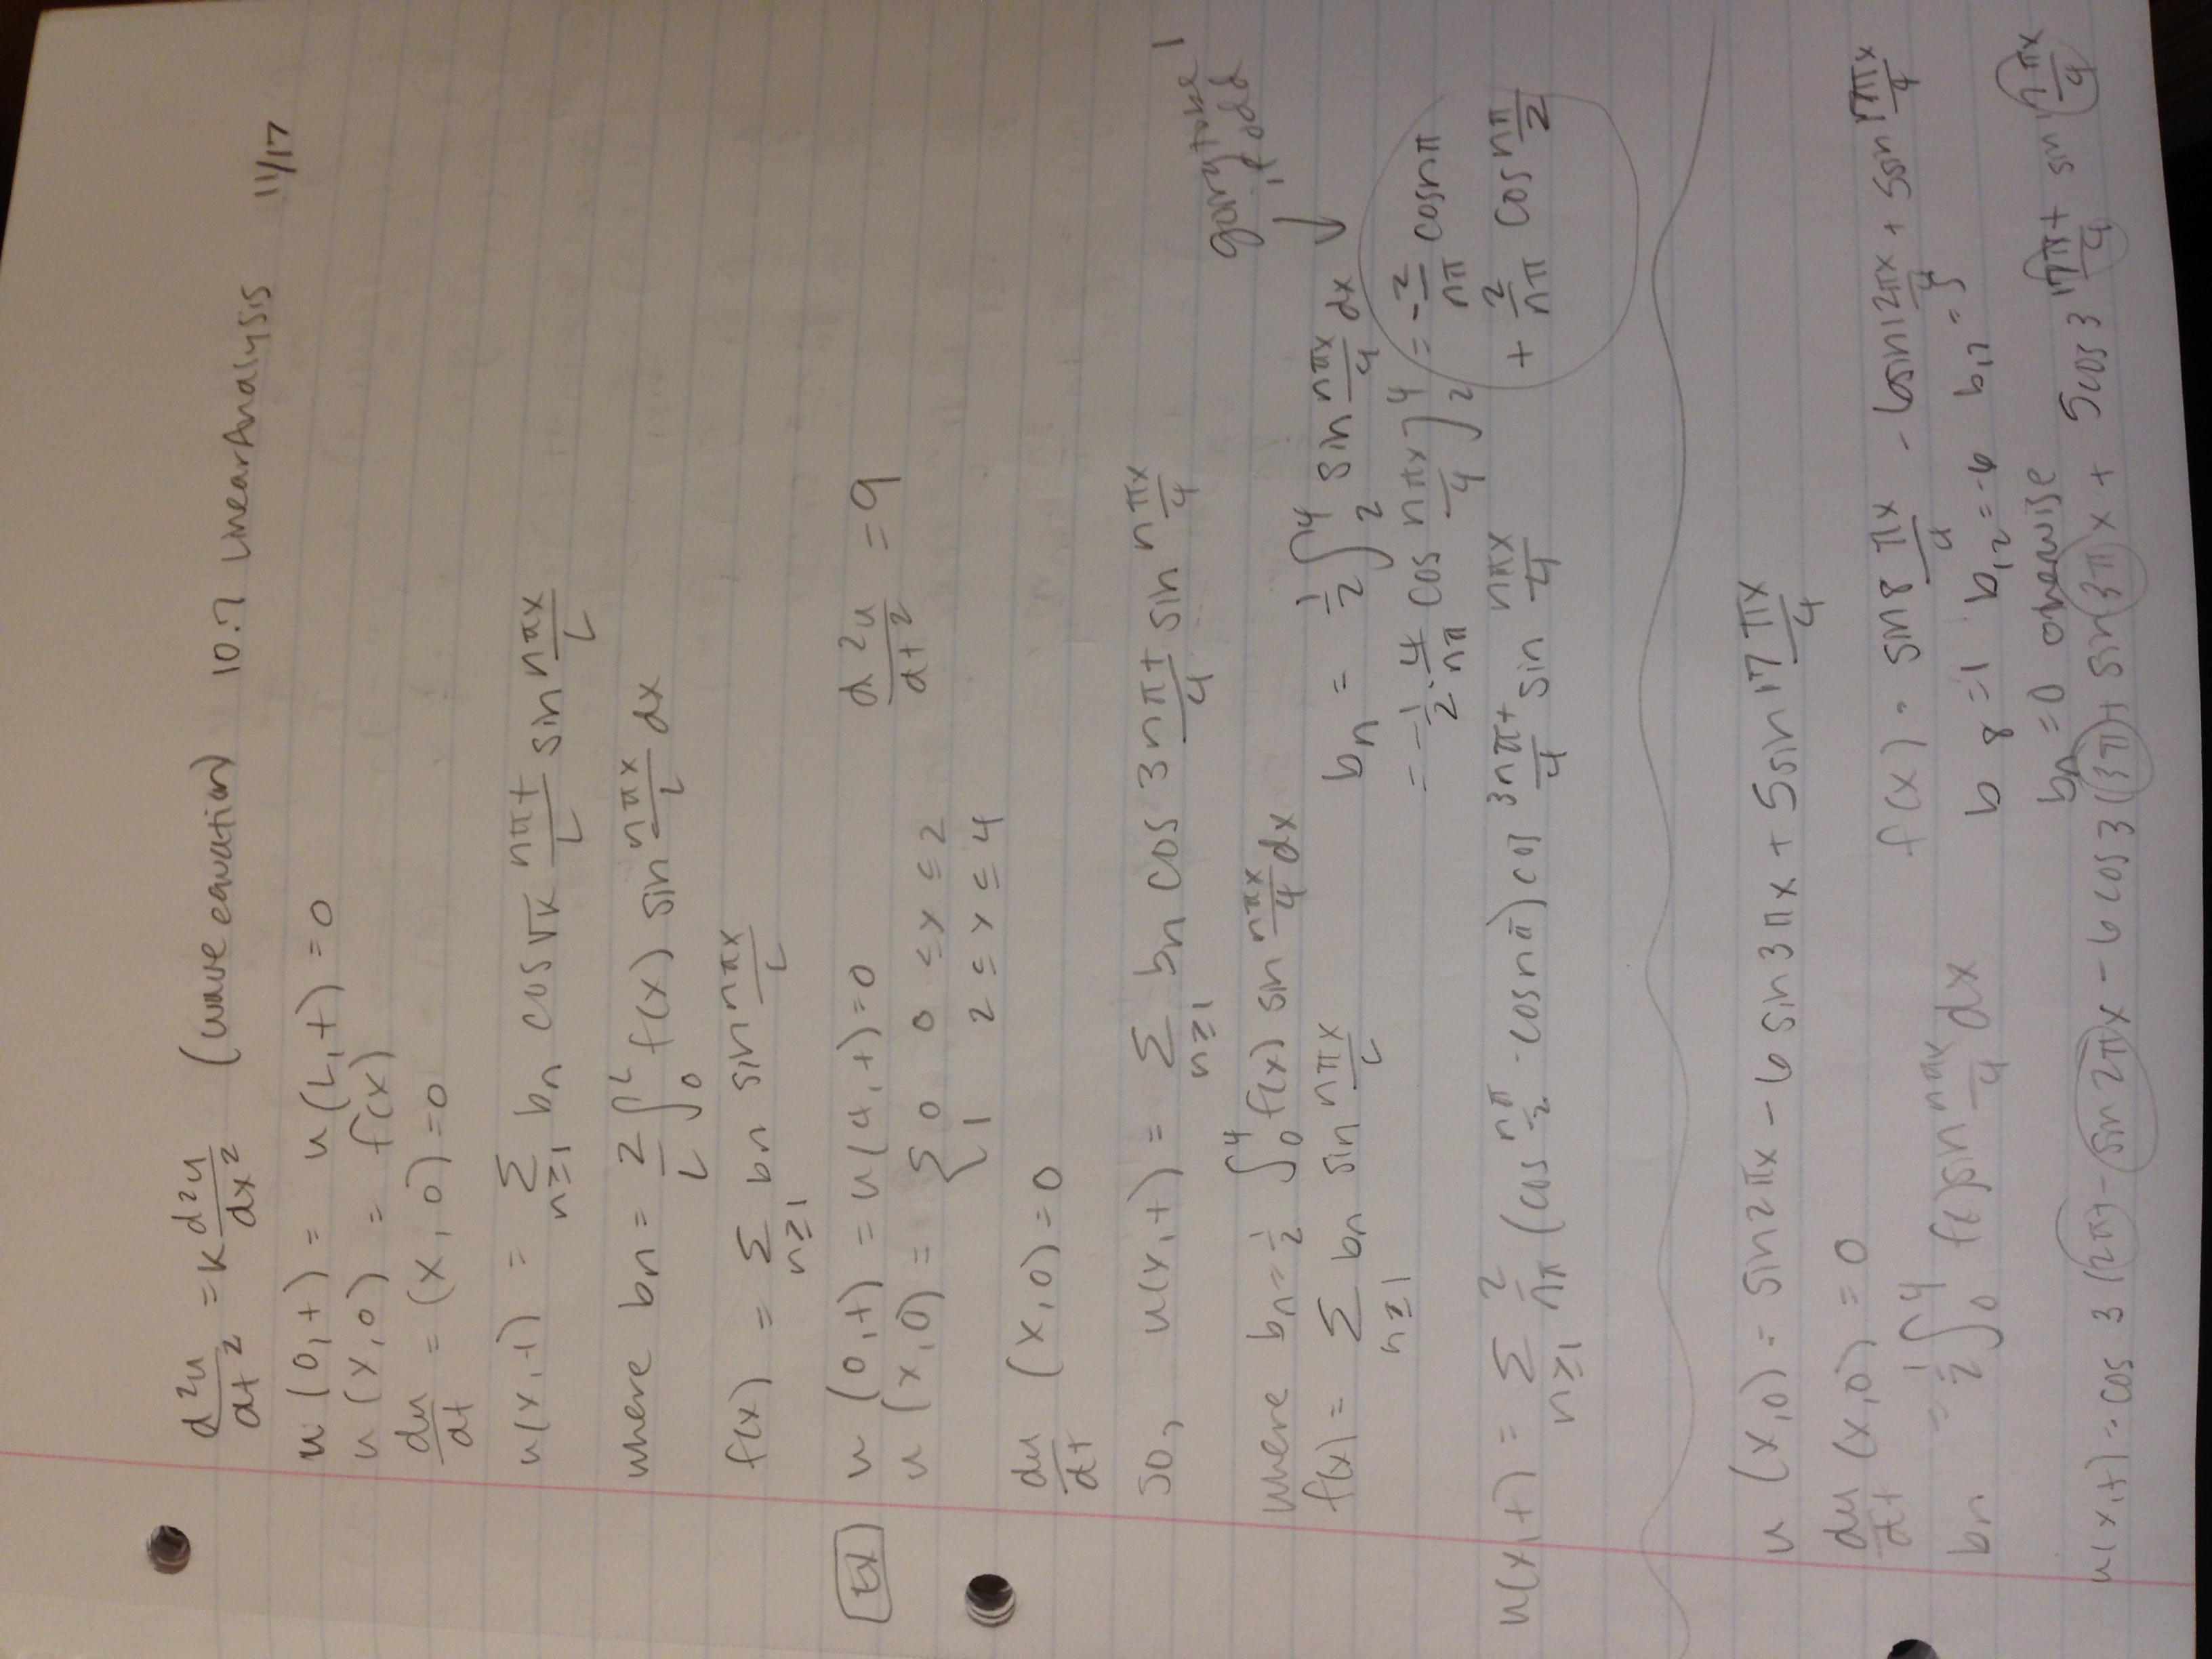 d²u/dt² = K d²u/dx² (wave equation) 10.7 Linear Analysis 11/17
u(0,t) = u(L,t) = 0
u(x,0) = f(x)
du/dt = (x,0) = 0
u(x,t) = Σ n≥1 bn cos √K nπt/L sin nπx/L
where bn = 2/L ∫₀ᴸ f(x) sin nπx/L dx
f(x) = Σ n≥1 bn sin nπx/L
Ex u(0,t) = u(4,t) = 0 d²u/dt² = 9
u(x,0) = { 0 0 ≤ x ≤ 2
1 2 ≤ x ≤ 4
du/dt (x,0) = 0
so, u(x,t) = Σ n≥1 bn cos 3nπt/4 sin nπx/4
going to be 1
if odd
where bn = 1/2 ∫₀⁴ f(x) sin nπx/4 dx bn = 1/2 ∫₂⁴ sin nπx/4 dx
f(x) = Σ n≥1 bn sin nπx/L = -1/2 · 4/nπ cos nπx/4 ]₂⁴ = -2/nπ cos nπ
+ 2/nπ cos nπ/2
u(x,t) = Σ n≥1 2/nπ (cos nπ/2 - cos nπ) cos 3nπt/4 sin nπx/4
u(x,0) = sin 2πx - 6 sin 3πx + 5 sin 17 πx/4
du/dt (x,0) = 0 f(x) = sin 8 πx/4 - 6 sin 12 πx/4 + 5 sin 17 πx/4
bn = 1/2 ∫₀⁴ f(x) sin nπx/4 dx b8 = 1 b12 = -6 b17 = 5
bn = 0 otherwise
u(x,t) = cos 3 (2πt - sin 2πx - 6 cos 3 (3π)t sin 3πx + 5 cos 3 17πt/4 sin 17πx/4